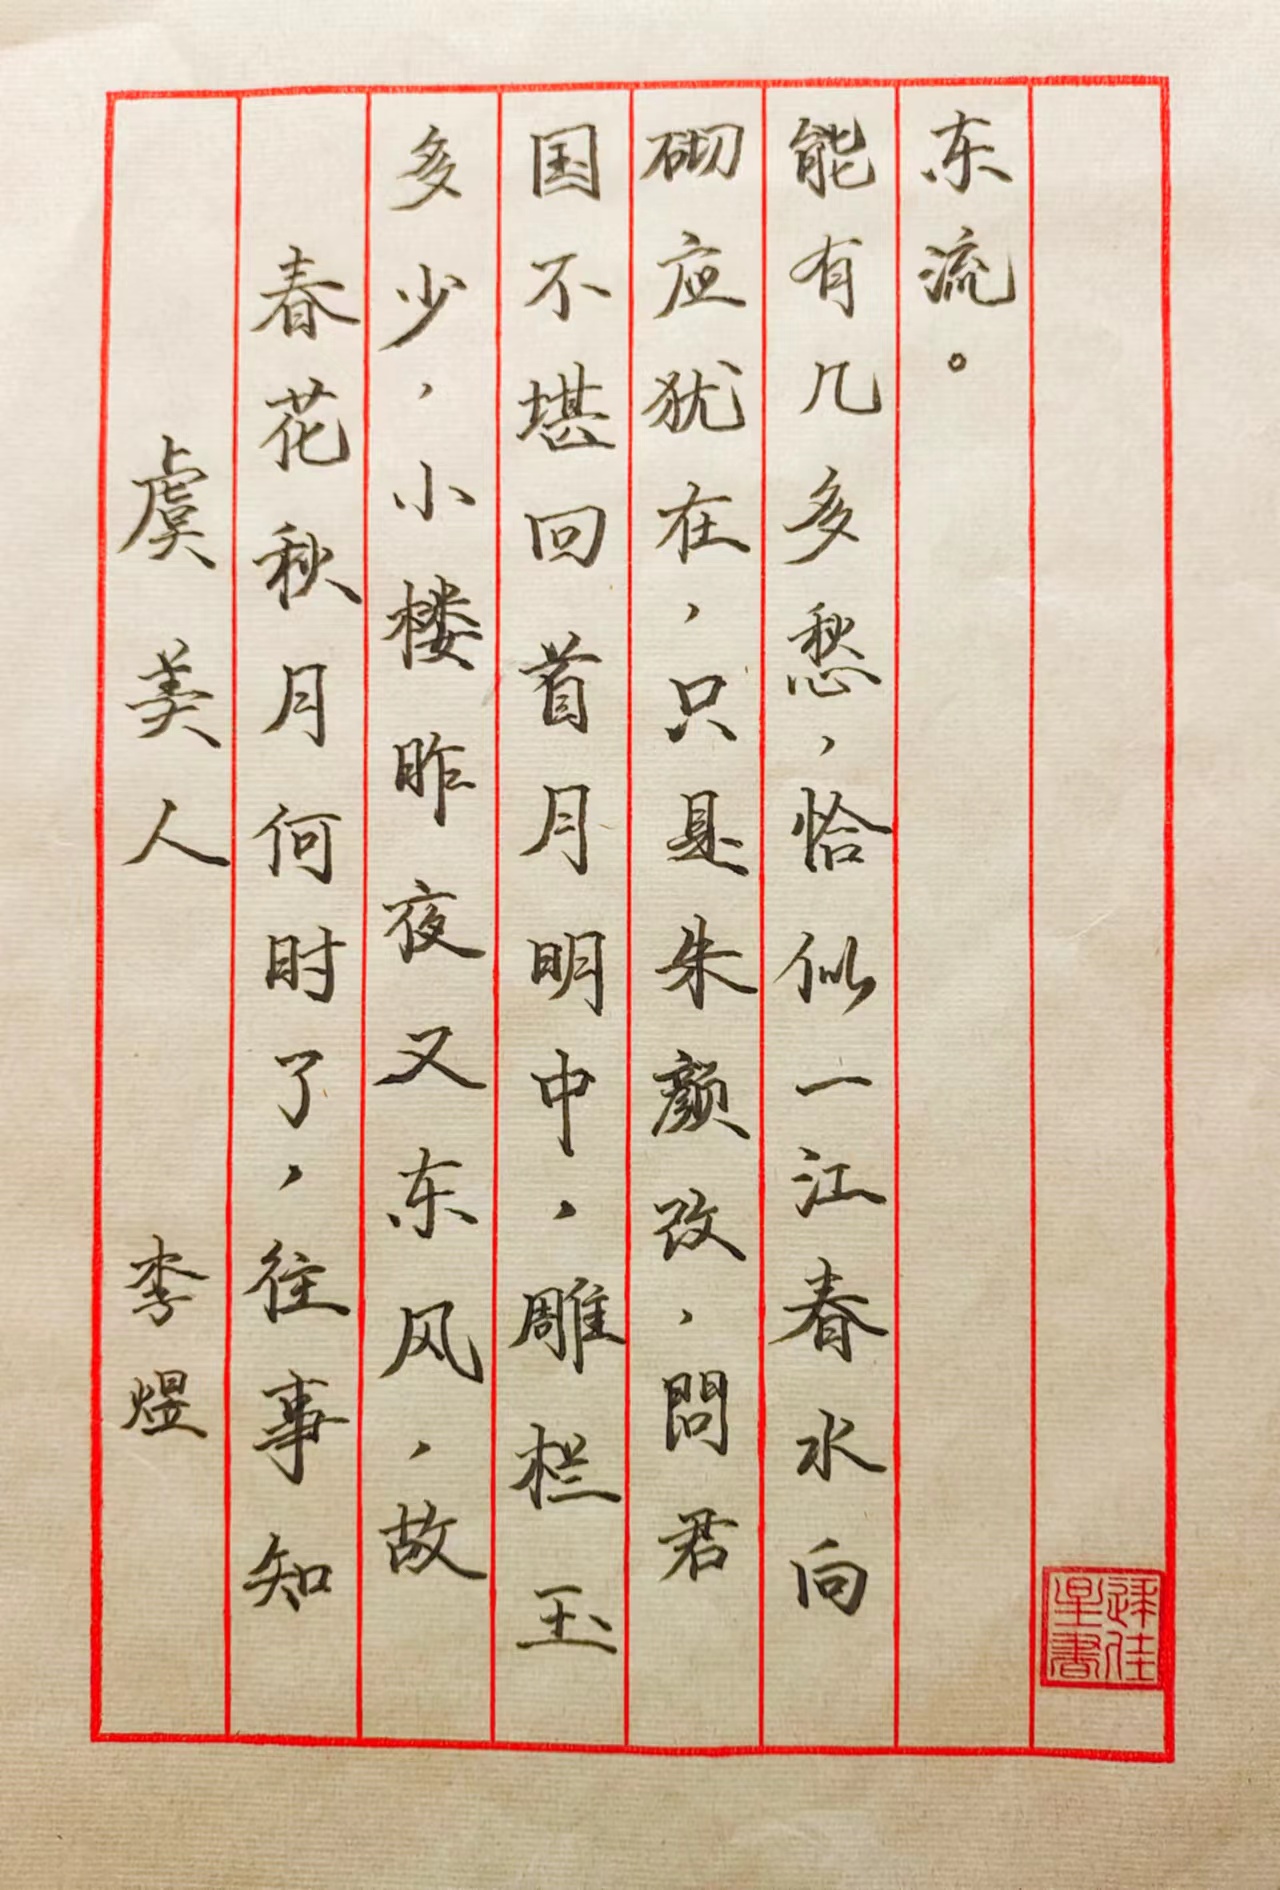 虞美人 李煜
春花秋月何时了，往事知
多少，小楼昨夜又东风，故
国不堪回首月明中，雕栏玉
砌应犹在，只是朱颜改，問君
能有几多愁，恰似一江春水向
东流。